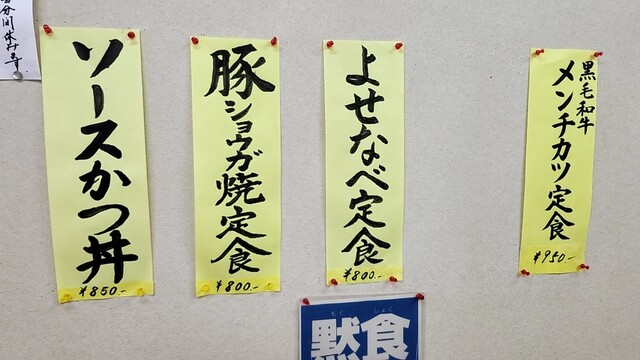 ソースかつ丼
¥850.-
豚ショウガ焼定食
¥800.-
よせなべ定食
¥800.-
黒毛和牛
メンチカツ定食
¥950.-
もく しょく
黙食